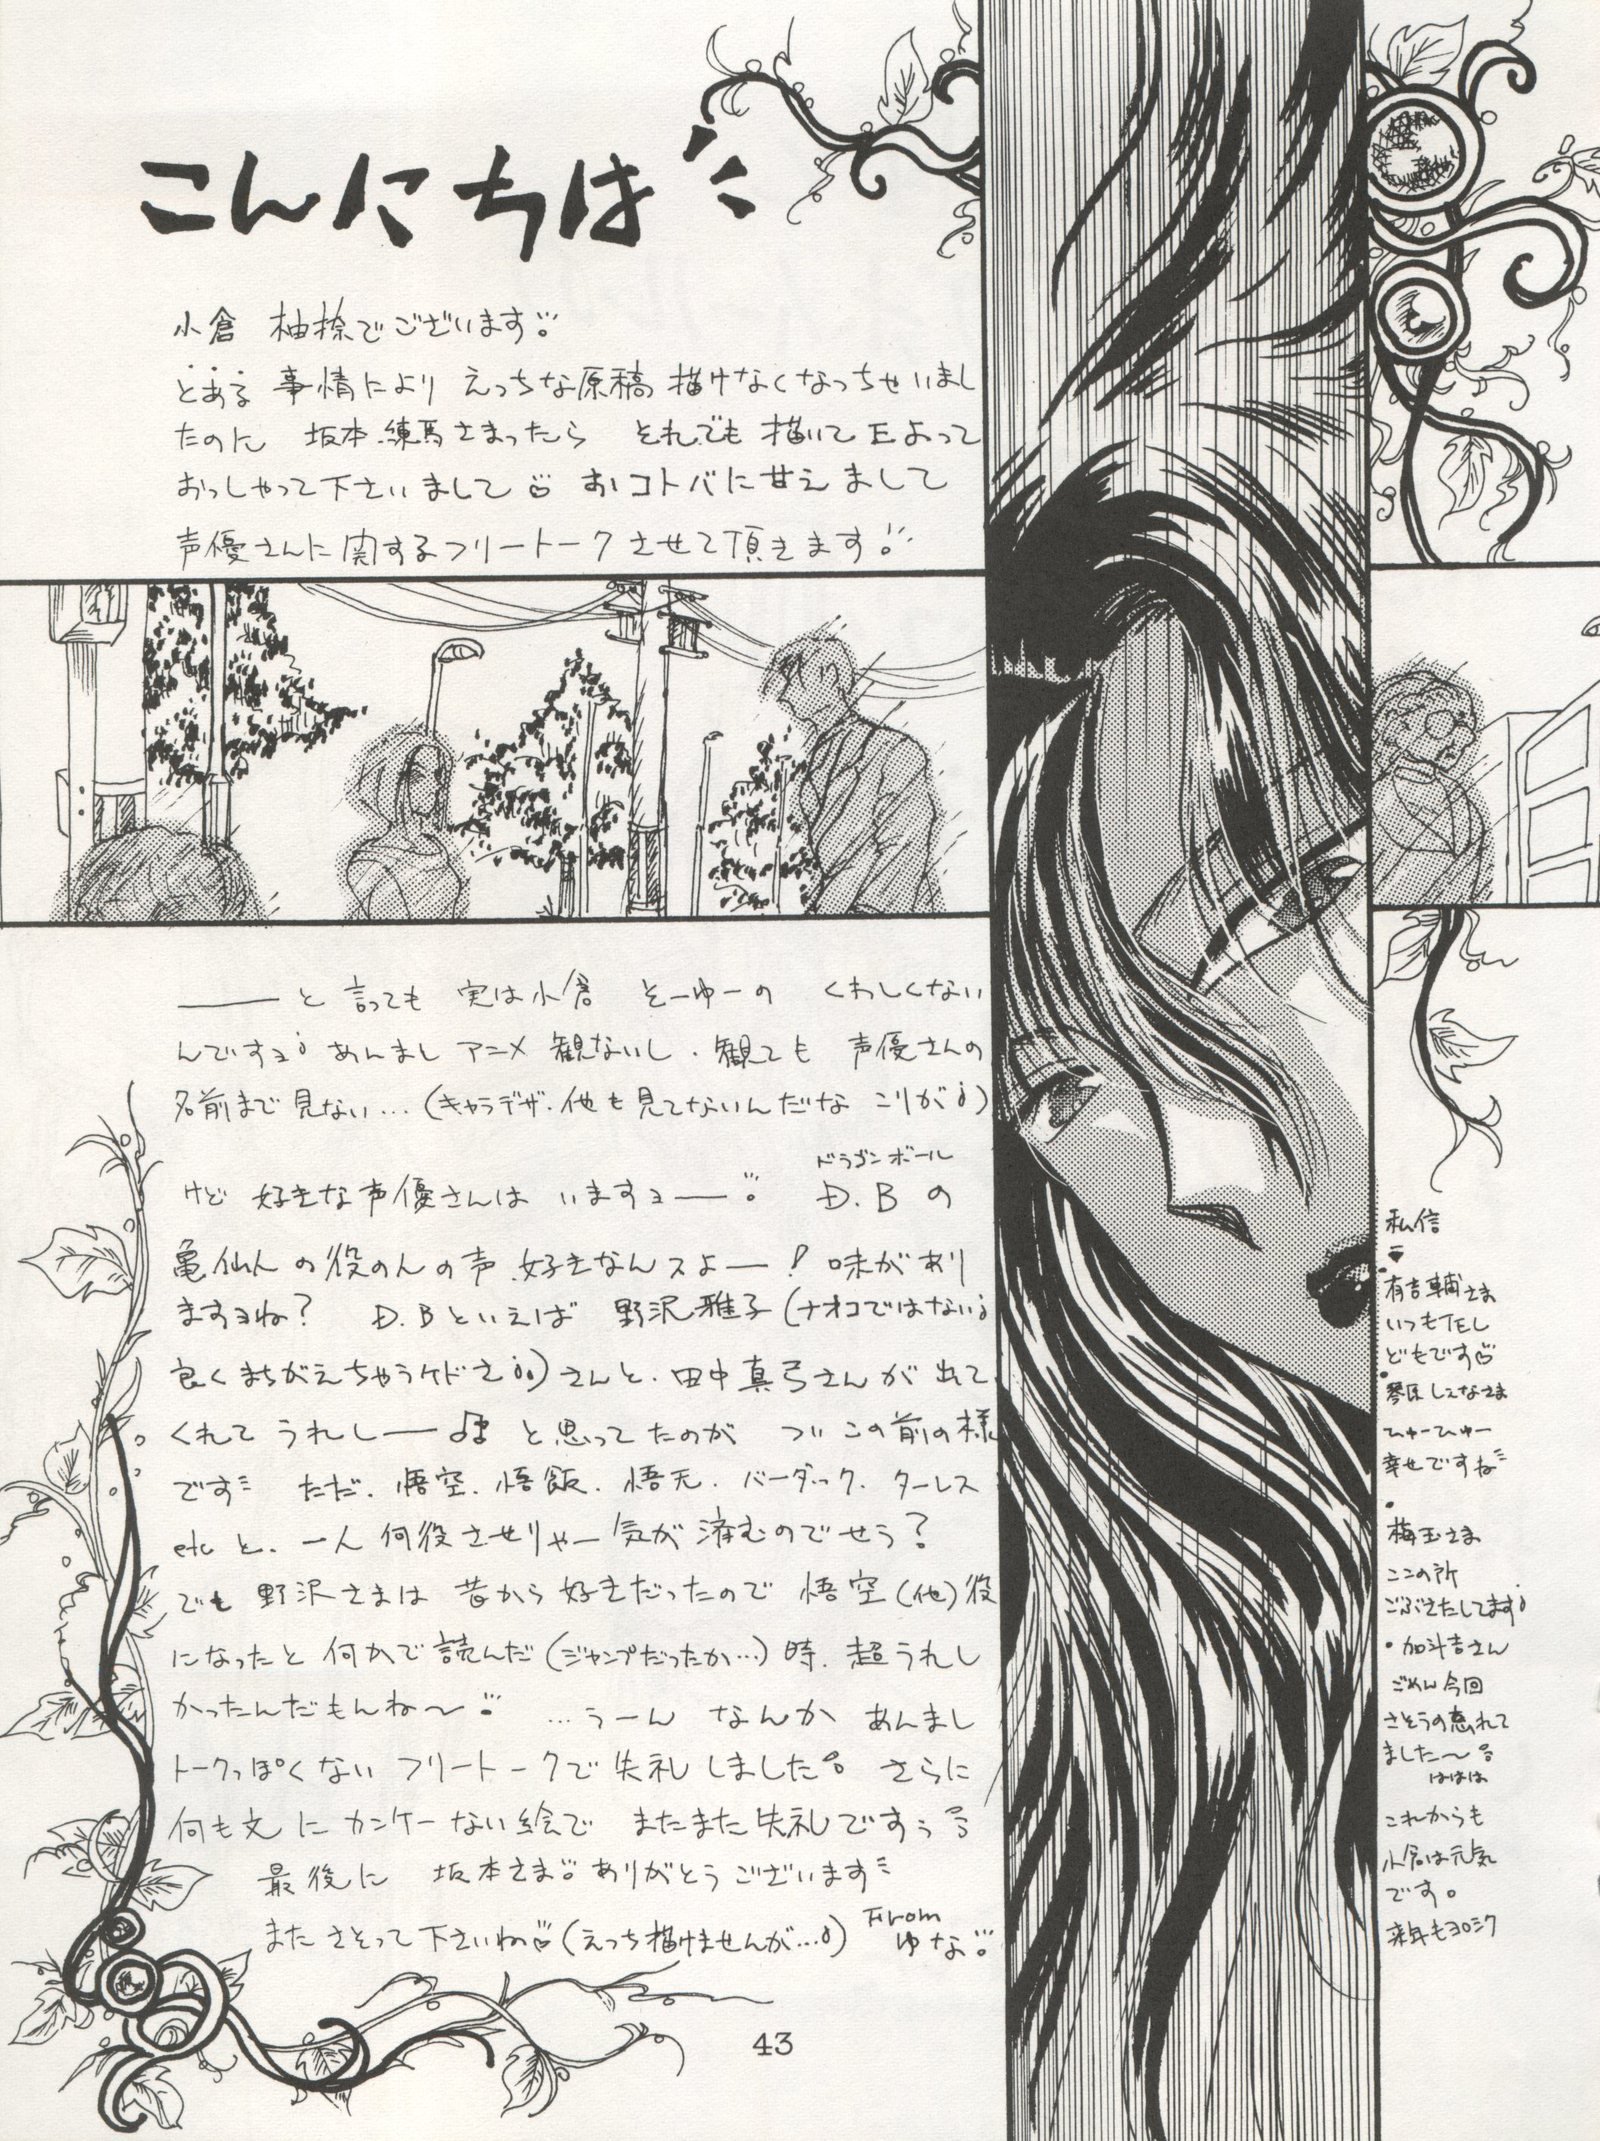 こんにちは
小倉 柚捺でございます
とある 事情により えっちな原稿 描けなくなっちゃいまし
たのに 坂本.練馬さまったら それでも 描いて E よって
おっしゃって下さいまして おコトバに甘えまして
声優さんに関するフリートークさせて頂きます
――と 言っても 実は小倉 そーゆーの くわしくない
んですョ あんまし アニメ 観ないし.観ても 声優さんの
名前まで見ない…(キャラデザ.他も見てないんだな こりが)
けど 好きな声優さんは いますョ――
ドラゴンボール
D.B の
亀仙人の役のんの声.好きなんスよ――! 味があり
ますョね? D.Bといえば 野沢雅子(ナオコではない
良くまちがえちゃうケドさ)さんと.田中真弓さんが出て
くれて うれしー―♪ と思ってたのが つい この前の様
です ただ.悟空.悟飯.悟天.バーダック.ターレス
etc と.一人 何役させりゃー気が済むのでせう?
でも 野沢さまは 昔から好きだったので 悟空(他)役
になったと 何かで読んだ(ジャンプだったか…)時.超うれし
かったんだもんね〜 …うーん なんか あんまし
トークっぽくない フリートークで失礼しました さらに
何も文に カンケーない絵で またまた失礼ですぅ
最後に 坂本さま ありがとうございます
また さそって下さいね(えっち描けませんが…)
From
ゆな
私信
・有吉輔さま
いつもTEL
どもです
・しえなさま
ひゅーひゅー
幸せですね
・梅玉さま
ここの所
ごぶさたしてます
・加斗吉さん
ごめん今回
さそうの忘れて
ました〜
ははは
これからも
小倉は元気
です。
来年もヨロシク
43